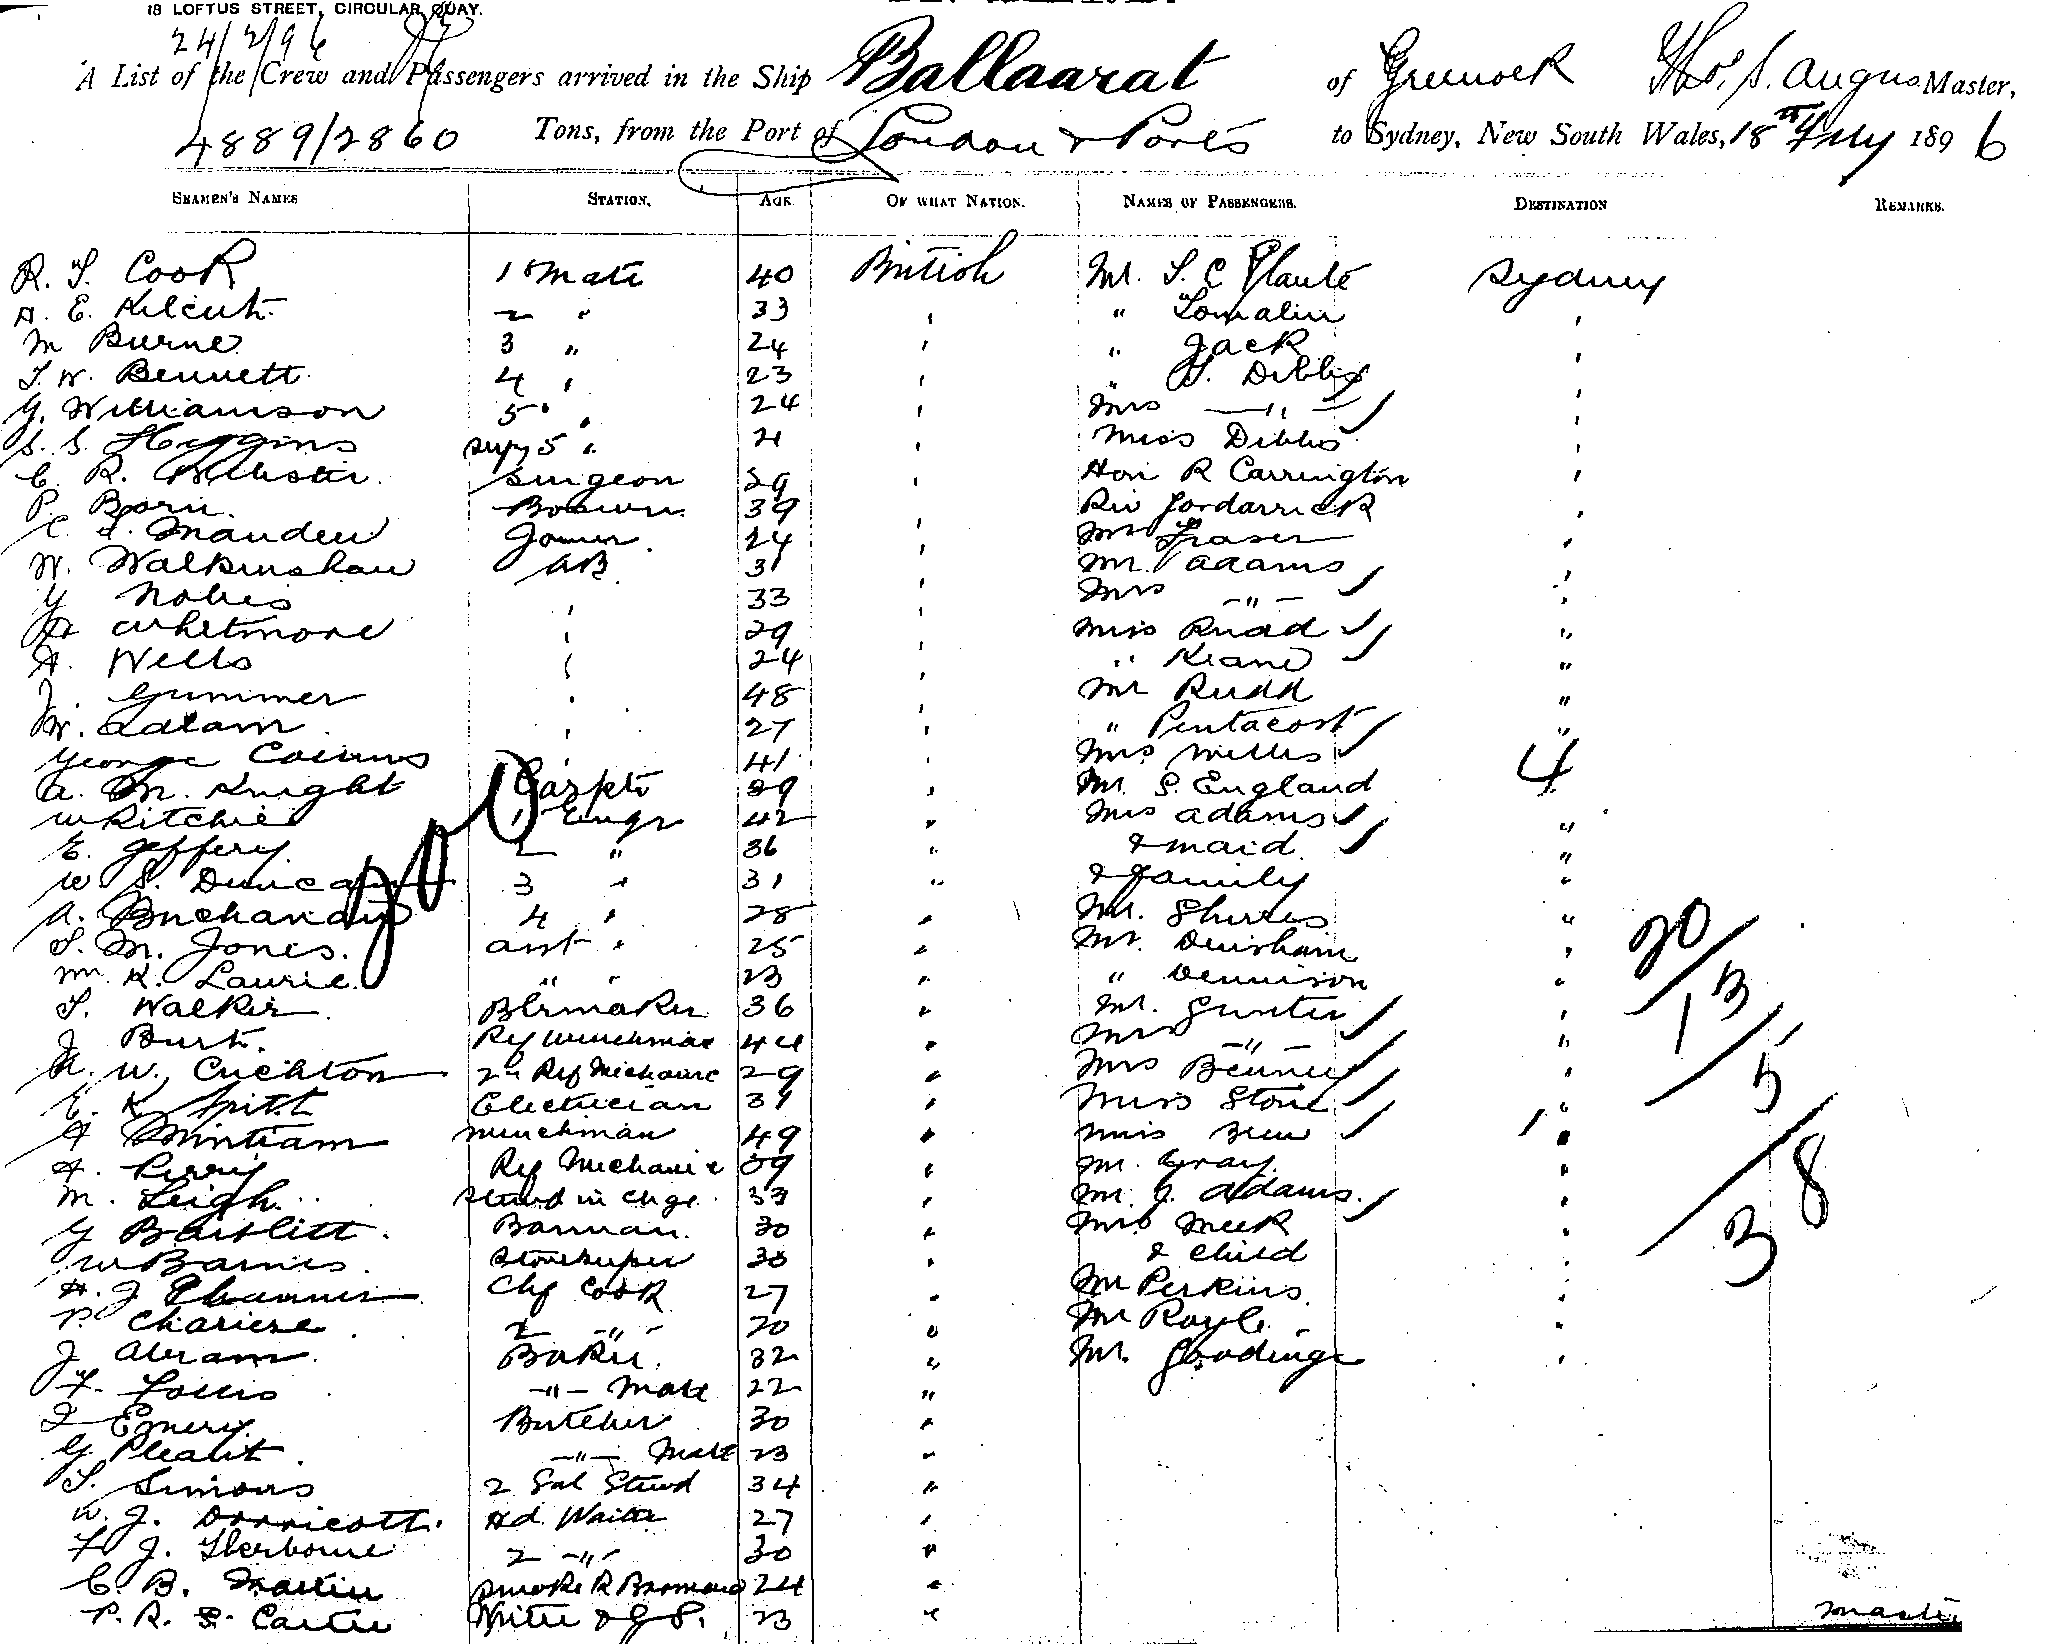 18 LOFTUS STREET, CIRCULAR QUAY.
24/2/96
A List of the Crew and Passengers arrived in the Ship Ballaarat of Greenock Thos. S. Angus Master,
4889/2860 Tons, from the Port of London & Ports to Sydney, New South Wales, 18th July 1896
SEAMEN'S NAMES STATION. AGE OF WHAT NATION. NAMES OF PASSENGERS. DESTINATION REMARKS.
R. S. Cook 1st Mate 40 British Mr. S. C. Sydney
A. E. 2 " 33 " "
M Burne 3 " 24 " " Jack "
T. W. Bennett 4 " 23 " " Dibbs "
G. Williamson 5 " 24 " Mrs —"— "
S. S. Higgins supy 5 " 21 " Miss Dibbs "
C. R. Webster Surgeon 29 " Hon R Carrington "
P. Born Boswn 39 " Rev "
C. Maudew Joiner 24 " Mrs Fraser "
W. Walkinshaw AB 31 " Mr. Adams "
G Nobes " 33 " Mrs —"— "
A Whetmore " 29 " Miss "
A. Wells " 24 " " Keane "
J. Gummer " 48 " Mr Rudd "
W. Adlam " 27 " " Pentacost "
George Collins " 41 " Mrs Willis 4
A. M. Knight 39 " Mr. S. England
W Ritchie 1 Engr 42 " Mrs Adams "
E. Jeffery 2 " 36 " & maid "
W S. Duncan 3 " 31 " & family "
A. Buchanan 4 " 28 " Mr. Shirres "
T. M. Jones. asst " 25 " Mr. Denisham " 20
Wm K. Laurie " " 23 " " Dennison " 13
T. Walker Blrmaker 36 " Mr. Gunter "
J Burt. Ref Winchman 44 " Mrs —"— " 5
A. W. Crichton 2nd Ref Mechanic 29 " Mrs "
E. K. Spitt Electrician 31 " Miss Stone "
A Mintram Winchman 49 " Miss " 8
A. Perry Ref Mechanic 39 " Mr. Gray "
M. Leigh. Steward in chge 33 " Mr. J. Adams. "
G Bartlett Barman. 30 " Mrs Meek " 3
W Barnes. Storekeeper 30 " & child "
A. J Chf Cook 27 " Mr Perkins "
P. 2 —"— 20 " Mr Royle "
J Abram Baker. 32 " Mr. Goodinge "
F. Follis —"— Mate 22 "
J Emery. Butcher 30 "
G. —"— Mate 23 "
T. Simons 2 Sal Stewd 34 "
W. J. Dorricott. Hd. Waiter 27 "
F J. Sherborne 2 —"— 30 "
C. B. Martin Smoke R Barman 24 "
P. R. S. Carter 23 "
Master